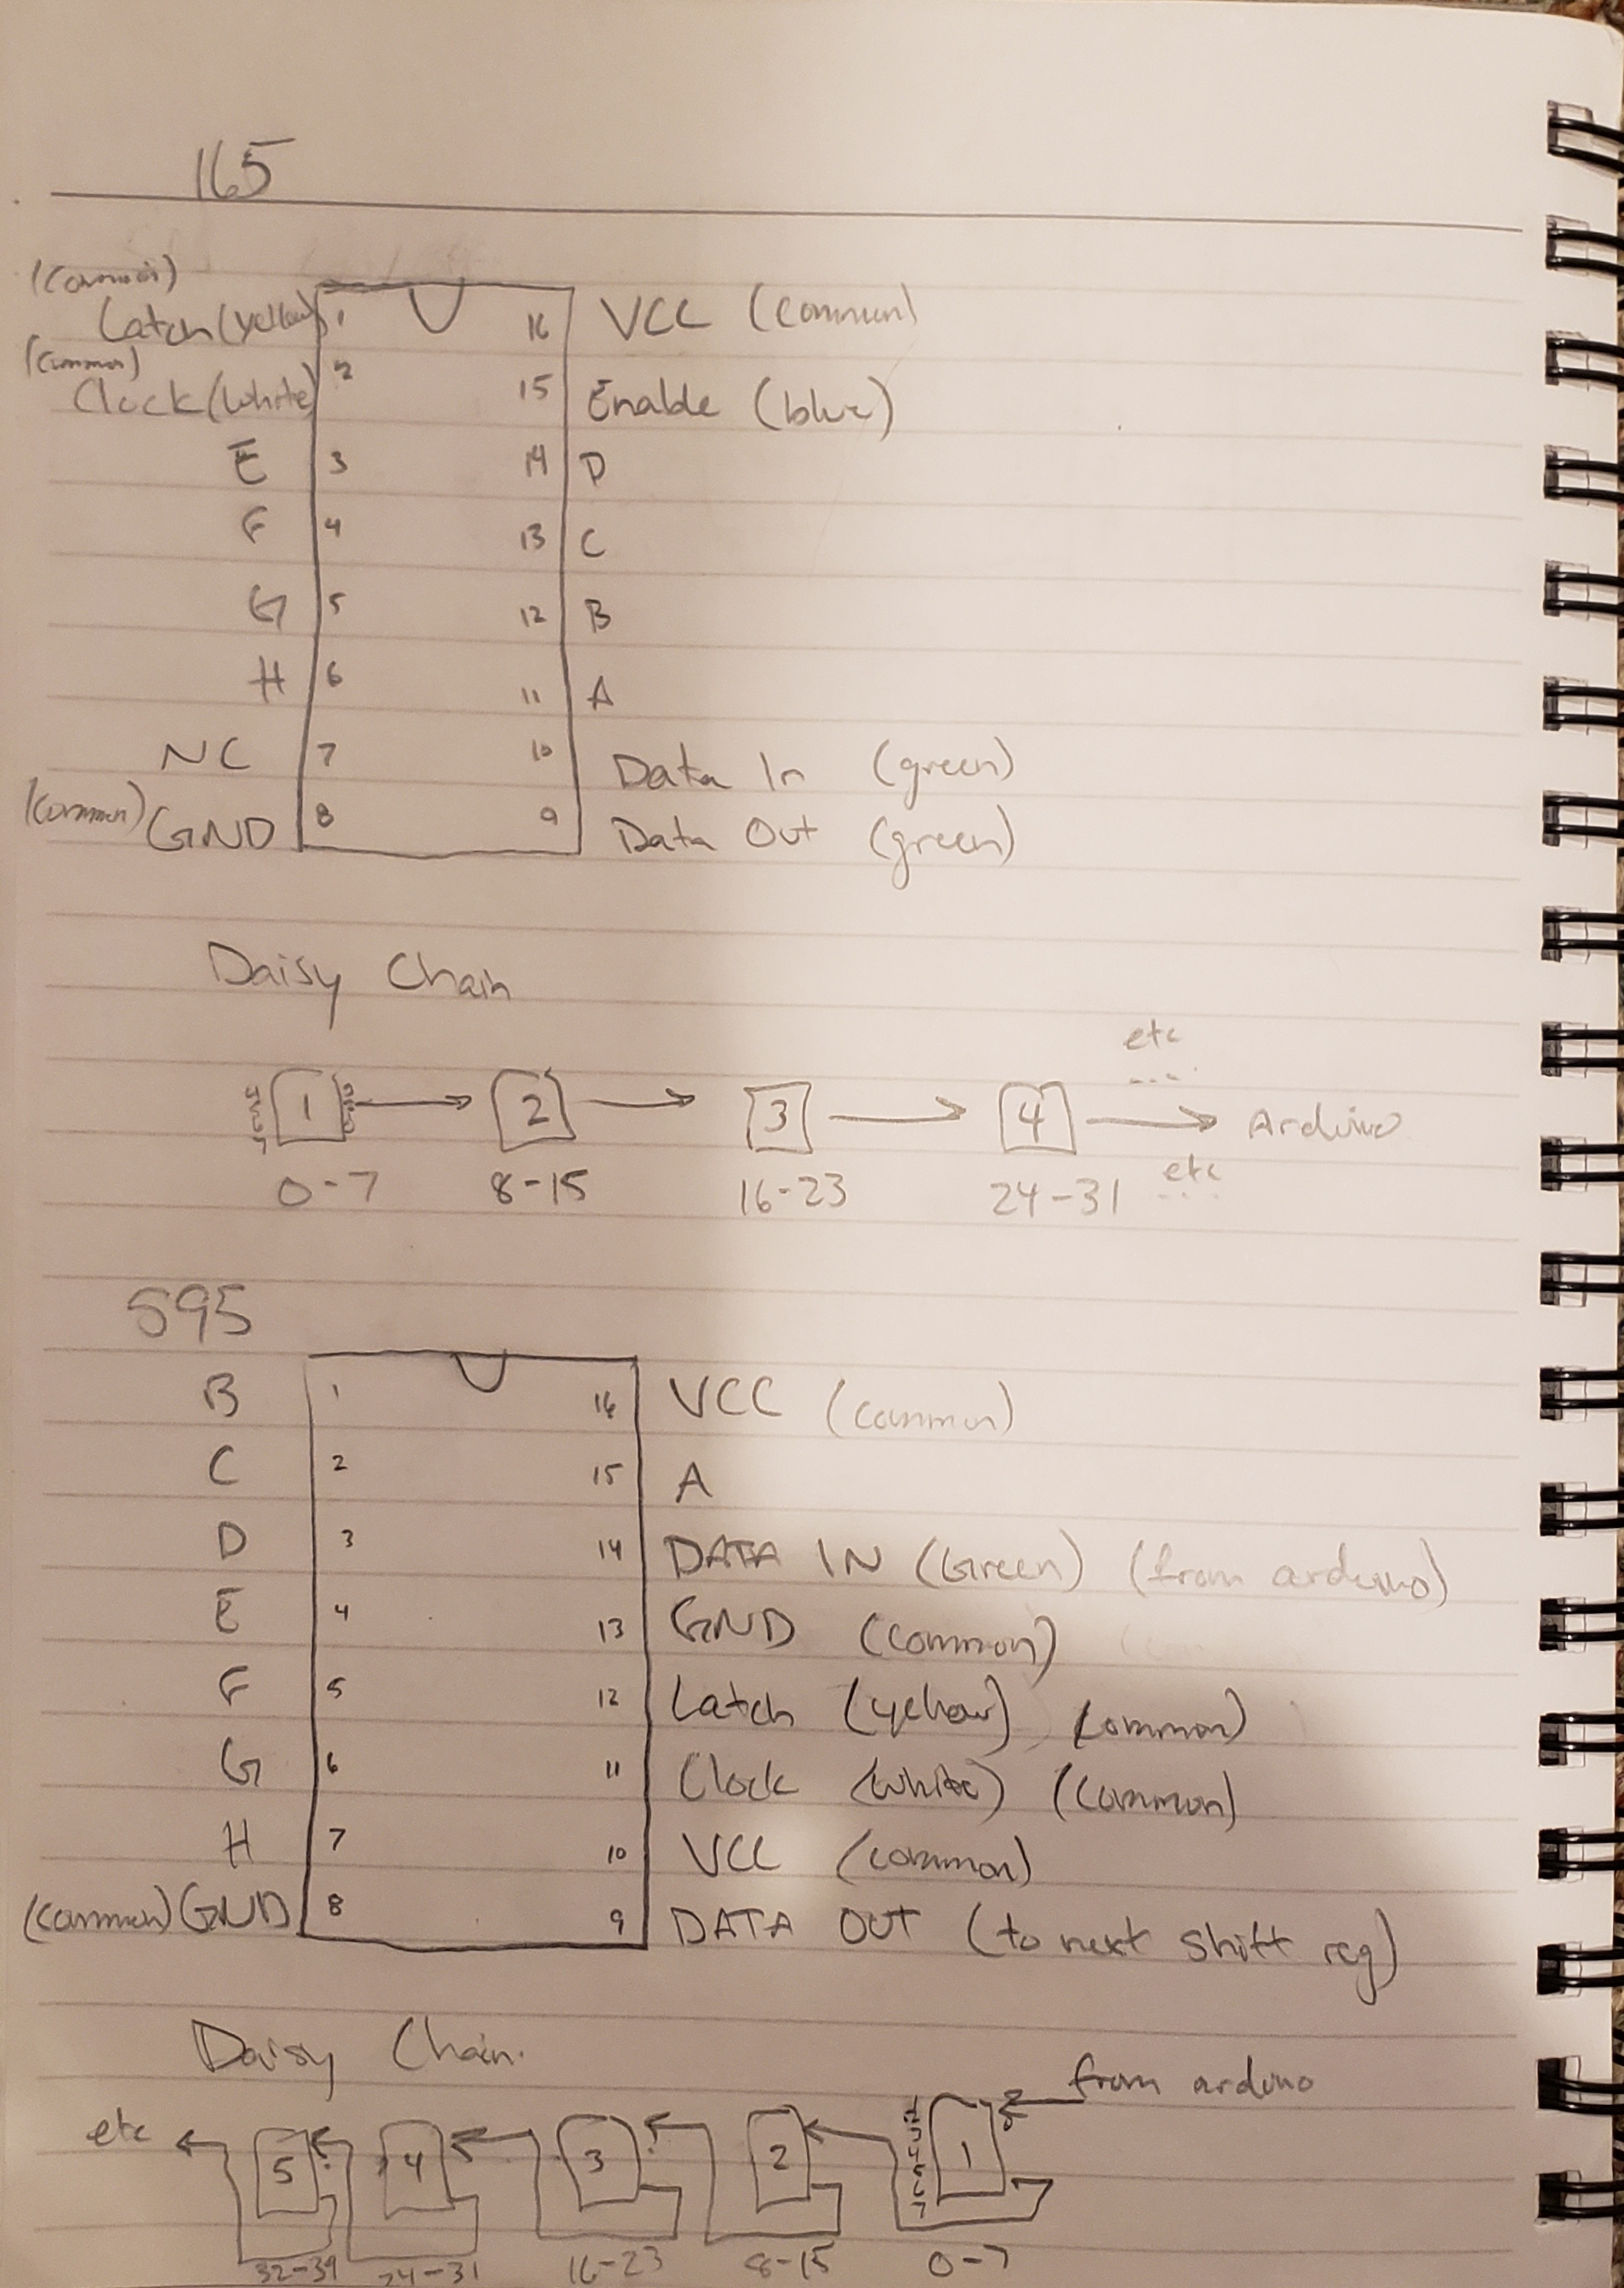 165
(common)
Latch (yellow) 1 16 VCC (common)
(common)
Clock (white) 2 15 Enable (blue)
E 3 14 D
F 4 13 C
G 5 12 B
H 6 11 A
NC 7 10 Data In (green)
(common) GND 8 9 Data Out (green)
Daisy Chain
etc
...
1 2 3 4 Arduino
0-7 8-15 16-23 24-31 etc
...
595
B 1 16 VCC (common)
C 2 15 A
D 3 14 DATA IN (Green) (from arduino)
E 4 13 GND (common)
F 5 12 Latch (yellow) (common)
G 6 11 Clock (white) (common)
H 7 10 VCC (common)
(common) GND 8 9 DATA OUT (to next shift reg)
Daisy Chain.
from arduino
etc 5 4 3 2 1
32-39 24-31 16-23 8-15 0-7